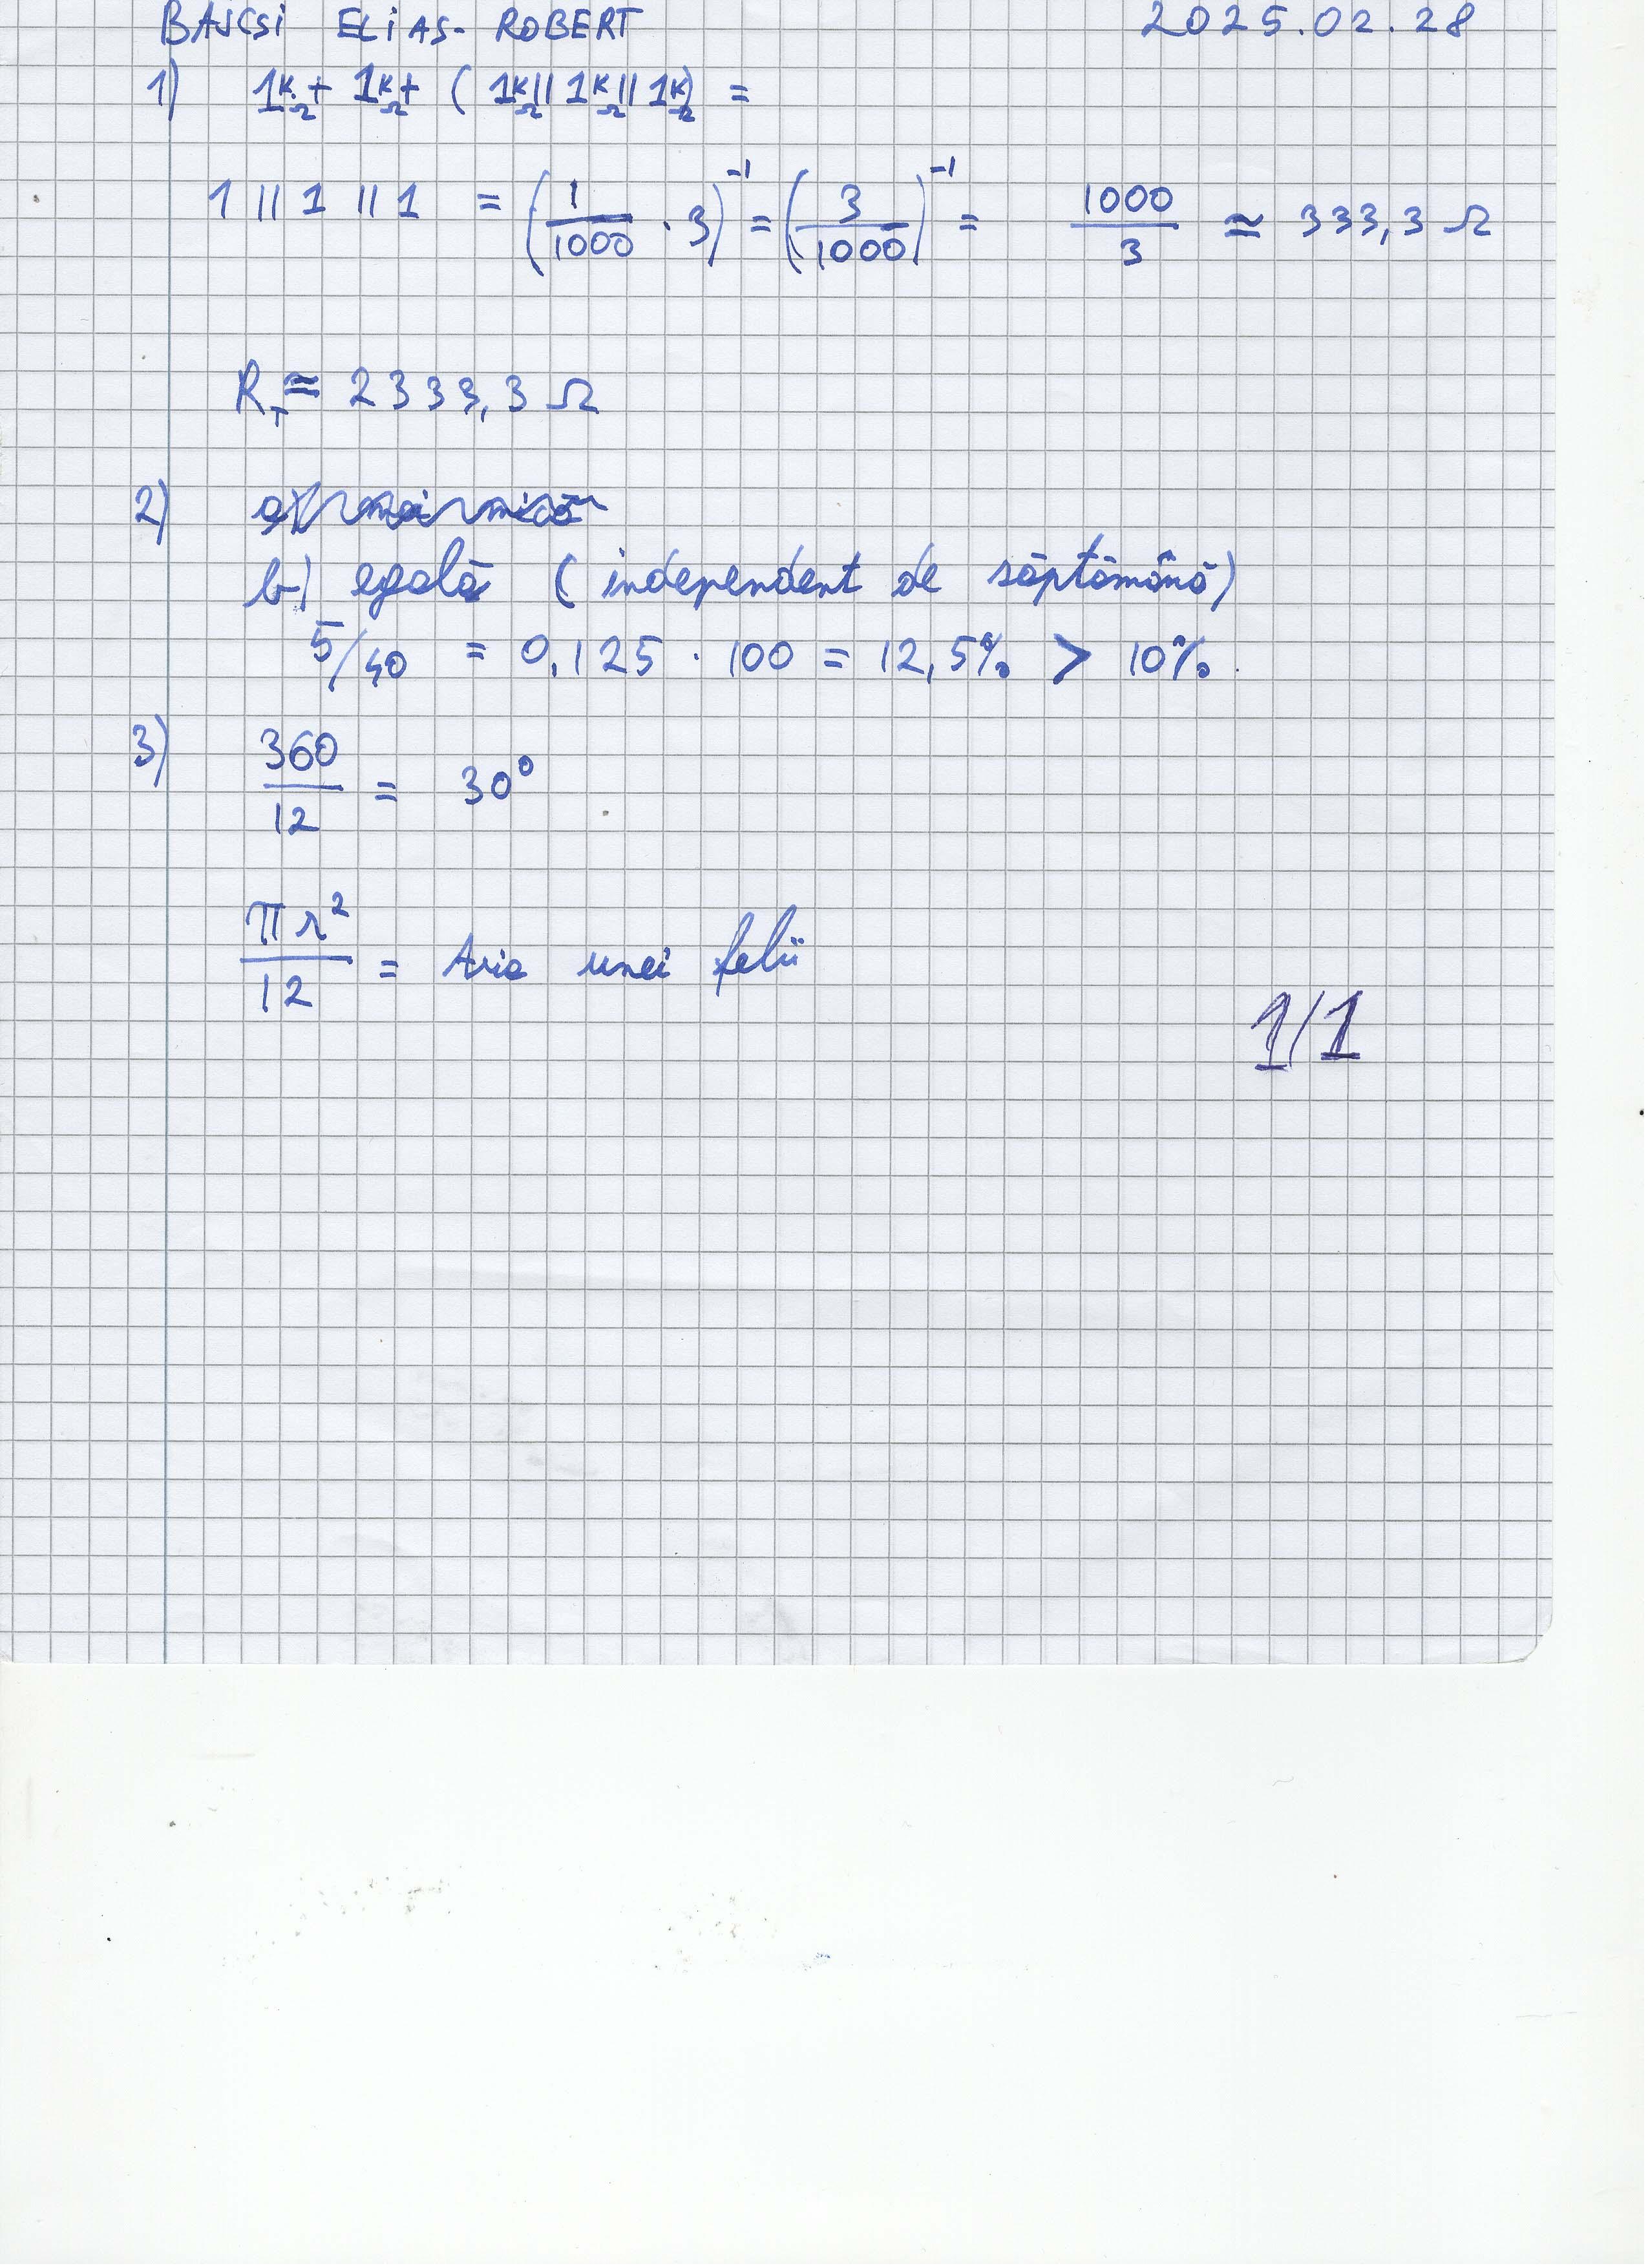 BAJCSI ELIAS-ROBERT 2025.02.28
1) 1kΩ + 1kΩ + ( 1kΩ || 1kΩ || 1kΩ ) =
1 || 1 || 1 = (1/1000 · 3)^-1 = (3/1000)^-1 = 1000/3 ≃ 333,3 Ω
R_T ≅ 2333,3 Ω
2)
b) egală (independent de săptămână)
5/40 = 0,125 · 100 = 12,5% > 10%.
3) 360/12 = 30°
πr²/12 = Aria unei felii
1/1